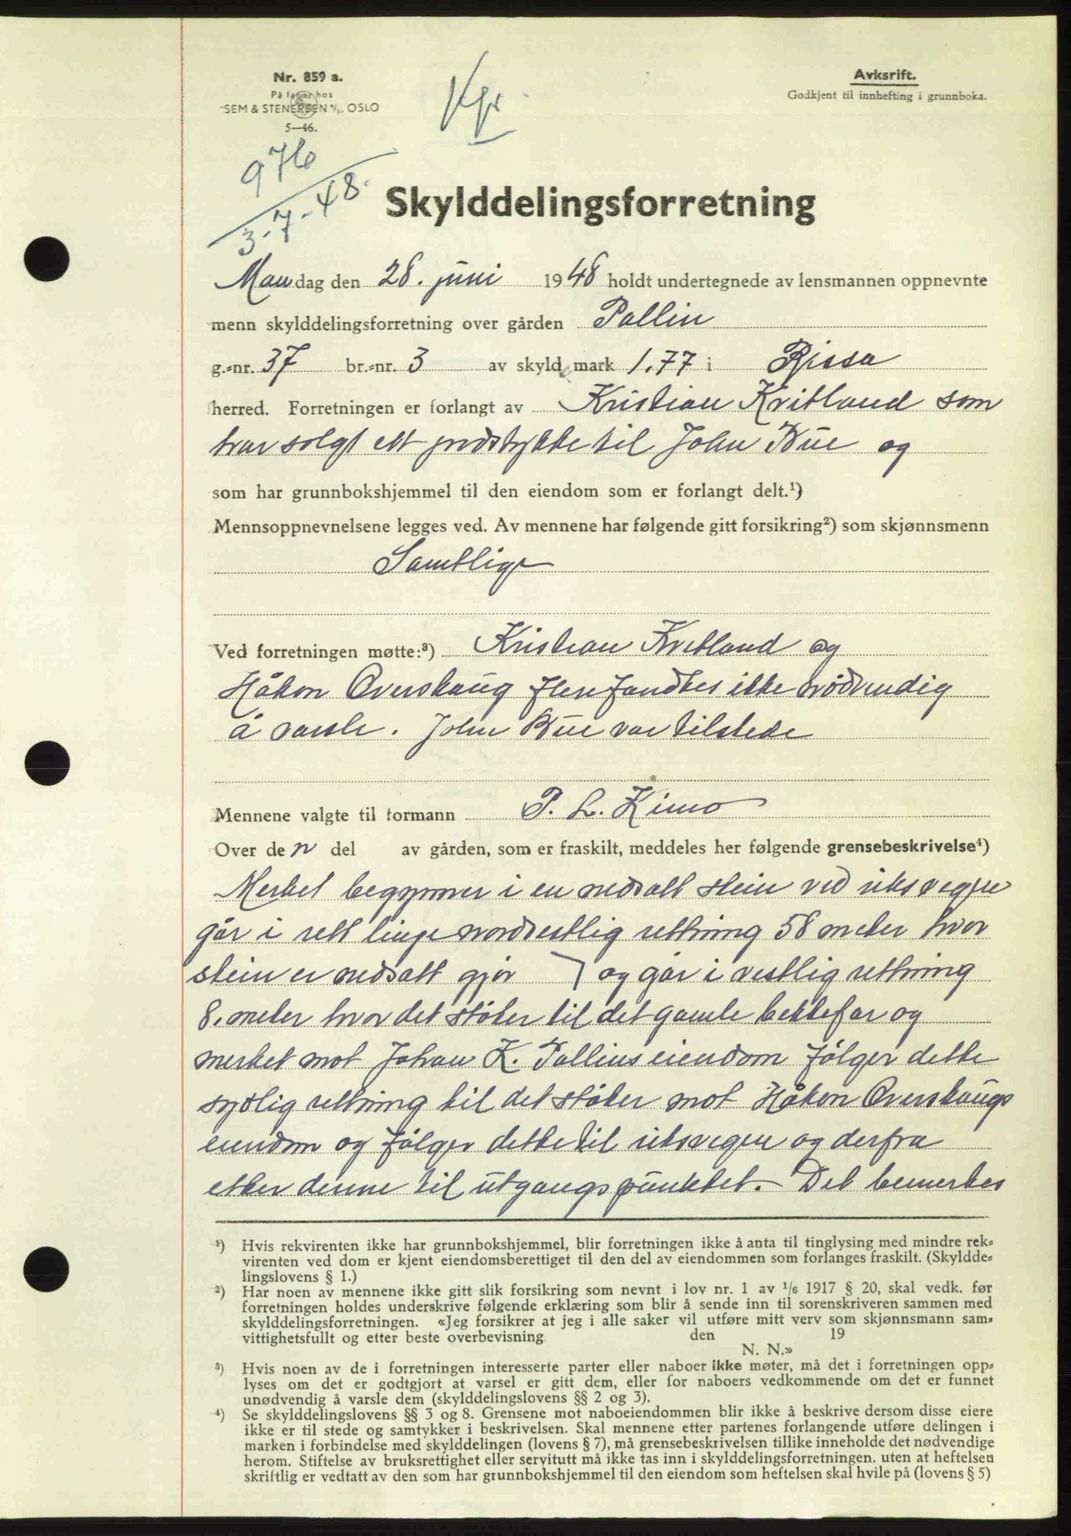 Nr. 859 a.
På lager hos
SEM & STENERSEN A/S, OSLO
5—46.
Kpr.
Avksrift.
Godkjent til innhefting i grunnboka.
976
3-7-48.
Skylddelingsforretning
Mandag den 28. juni 1948 holdt undertegnede av lensmannen oppnevnte
menn skylddelingsforretning over gården Pallin
g.-nr. 37 br.-nr. 3 av skyld mark 1.77 i Rissa
herred. Forretningen er forlangt av Kristian Kvitland som
har solgt ett jordstykke til John Bue og
som har grunnbokshjemmel til den eiendom som er forlangt delt.¹)
Mennsoppnevnelsene legges ved. Av mennene har følgende gitt forsikring²) som skjønnsmenn
Samtlige
Ved forretningen møtte:³) Kristian Kvitland og
Håkon Overskaug flere fandtes ikke nødvendig
å varsle. John Bue var tilstede
Mennene valgte til formann P. L. Kimo
Over den del av gården, som er fraskilt, meddeles her følgende grensebeskrivelse⁴)
Merket begynner i en nedsatt stein ved riksvegen
går i rett linje nordvestlig rettning 58 meter hvor
stein er nedsatt gjør ㄱ og går i vestlig rettning
8. meter hvor det støter til det gamle bekkefar og
merket mot Johan K. Pallins eiendom følger dette
sydlig rettning til det støter mot Håkon Overskaugs
eiendom og følger dette til riksvegen og derfra
etter denne til utgangspunktet. Det bemerkes
¹) Hvis rekvirenten ikke har grunnbokshjemmel, blir forretningen ikke å anta til tinglysing med mindre rek-
virenten ved dom er kjent eiendomsberettiget til den del av eiendommen som forlanges fraskilt. (Skyldde-
lingslovens § 1.)
²) Har noen av mennene ikke gitt slik forsikring som nevnt i lov nr. 1 av 1/6 1917 § 20, skal vedk. før
forretningen holdes underskrive følgende erklæring som blir å sende inn til sorenskriveren sammen med
skylddelingsforretningen. «Jeg forsikrer at jeg i alle saker vil utføre mitt verv som skjønnsmann sam-
vittighetsfullt og etter beste overbevisning den 19
N. N.»
³) Hvis noen av de i forretningen interesserte parter eller naboer ikke møter, må det i forretningen opp-
lyses om det er godtgjort at varsel er gitt dem, eller for naboers vedkommende om det er funnet
unødvendig å varsle dem (skylddelingslovens §§ 2 og 3).
⁴) Se skylddelingslovens §§ 3 og 8. Grensene mot naboeiendommen blir ikke å beskrive dersom disse eiere
ikke er til stede og samtykker i beskrivelsen. Skal mennene etter partenes forlangende utføre delingen i
marken i forbindelse med skylddelingen (lovens § 7), må grensebeskrivelsen tillike inneholde det nødvendige
herom. Stiftelse av bruksrettighet eller servitutt må ikke tas inn i skylddelingsforretningen. uten at heftelsen
skriftlig er vedtatt av den som har grunnbokshjemmel til den eiendom som heftelsen skal hvile på (lovens § 5)